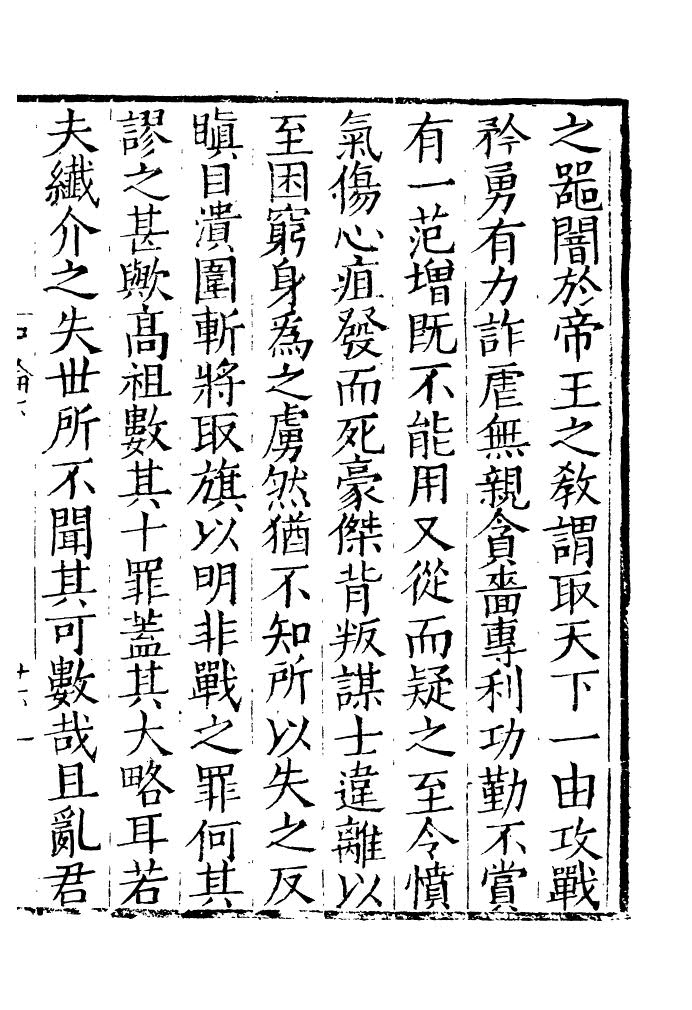 之噐闇於帝王之教謂取天下一由攻戰
矜勇有力詐虐無親貪嗇專利功勤不賞
有一范增既不能用又從而疑之至令憤
氣傷心疽發而死豪傑背叛謀士違離以
至困窮身為之虜然猶不知所以失之反
瞋目潰圍斬將取旗以明非戰之罪何其
謬之甚歟高祖數其十罪蓋其大略耳若
夫纎介之失世所不聞其可數哉且亂君